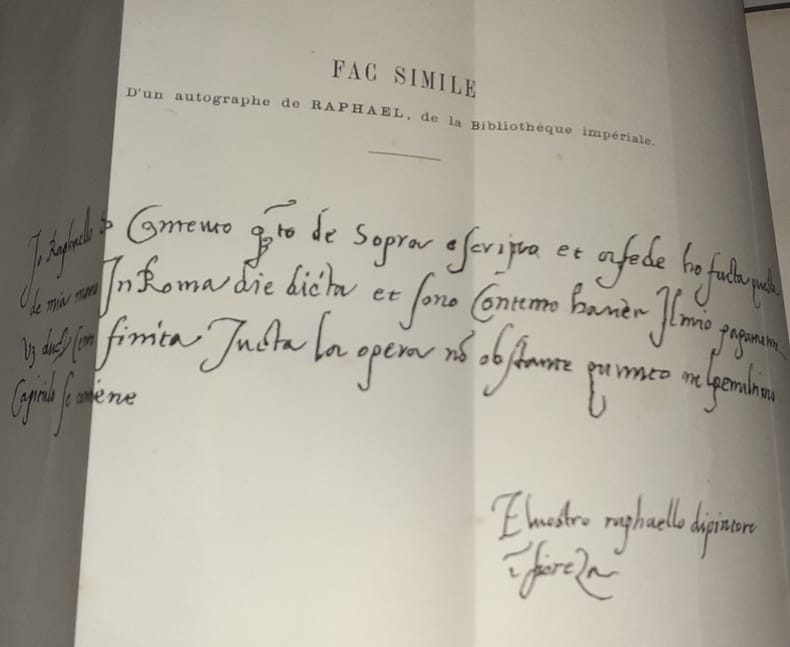 FAC SIMILE
D'un autographe de RAPHAEL, de la Bibliothéque impériale.
Jo Raphaello Contento q̃to de Sopra e scripta et asede ho facta questa
de mia mano In Roma die dicta et sono Contento haver Il mio pagamen
finita Tucta la opera nõ obstante quanto nel penultimo
Capitulo se contiene
El vostro raphaello dipintore
ĩ fiorẽza